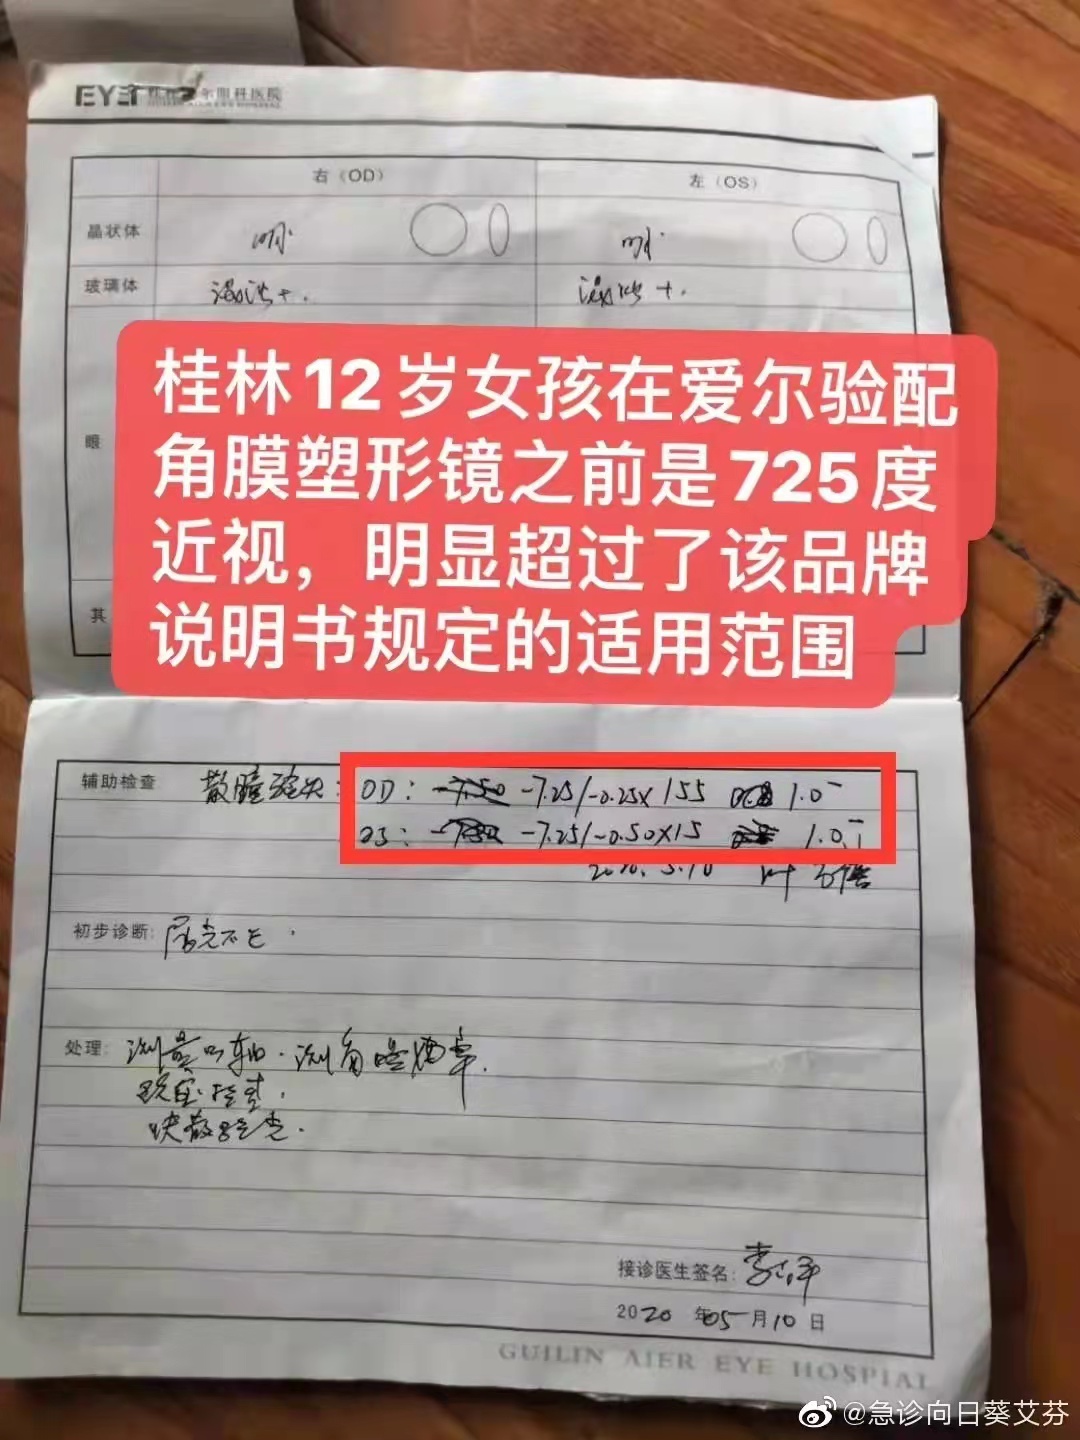 尔眼科医院
右（OD）
左（OS）
晶状体
明
明
玻璃体
混浊+.
混浊+.
桂林12岁女孩在爱尔验配
角膜塑形镜之前是725度
近视，明显超过了该品牌
说明书规定的适用范围
眼
其
辅助检查
散瞳验光：OD：-7.50 -7.25/-0.25×155 1.0⁻
OS：-7.50 -7.25/-0.50×15 1.0⁻
2020.5.10
初步诊断：屈光不正.
处理：测量眼轴.测角膜曲率.
眼底检查.
快散验光.
接诊医生签名：
2020年05月10日
GUILIN AIER EYE HOSPIAL
@急诊向日葵艾芬